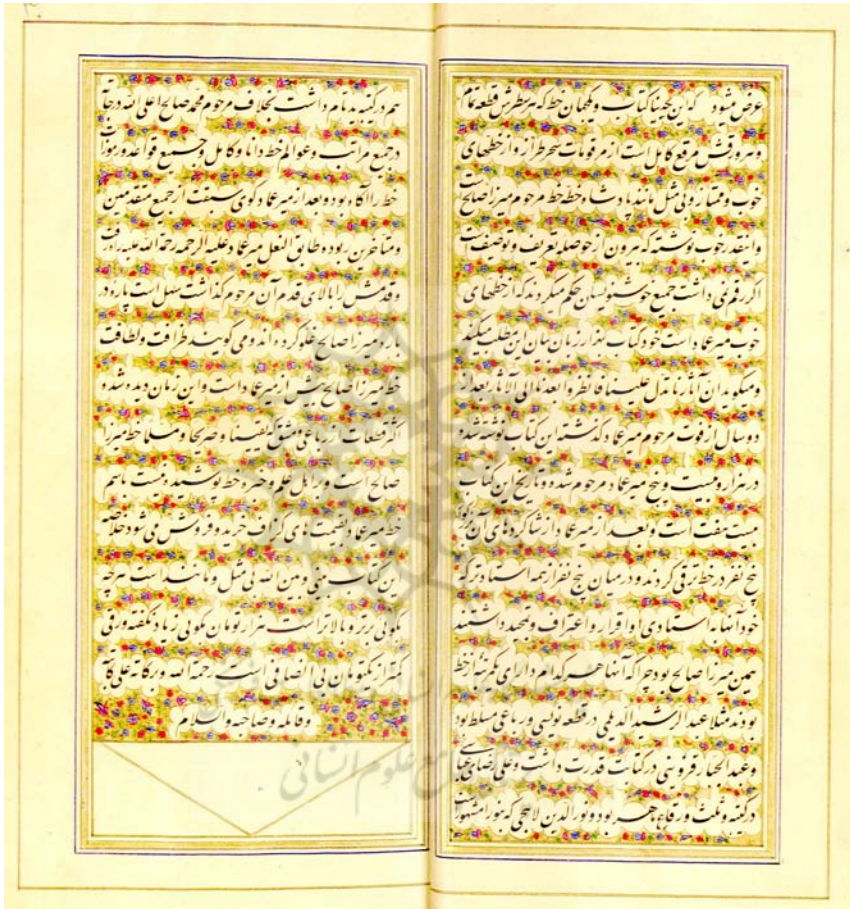 عرض میشود که این بی‌بینا کتاب و یکجهان خط که هر سطرش قطعه تمام
و هر ورقش مرقع کامل است از مرقومات سحر طراز و از خطهای
خوب و ممتاز و بی مثل مانند پادشاه خط خط مرحوم میرزا صالح است
و اینقدر خوب نوشته که بیرون از حوصله تعریف و توصیف است
اگر رقم نمی داشت جمیع خوشنویسان حکم میکردند که از خطهای
خوب میرعماد است خود کتاب بهزار زبان بیان این مطلب میکند
و میگوید ان آثارنا تدل علینا فانظروا بعدنا الی الآثار بعد از
دو سال از فوت مرحوم میرعماد گذشته این کتاب نوشته شده
در هزار و بیست و پنج میرعماد مرحوم شده و تاریخ این کتاب
بیست هفت است و بعد از میرعماد از شاگردهای آن مرحوم
پنج نفر در خط ترقی کردند و در میان پنج نفر از همه استادتر که
خود آنها به استادی او اقرار و اعتراف و تمجید داشتند
همین میرزا صالح بود چرا که آنها هر کدام دارای یکرتبه از خط
بودند مثلا عبدالرشید الدیلمی در قطعه نویسی و رباعی مسلط بود
و عبدالجبار قزوینی در کتابت قدرت داشت و علی رضای عباسی
در کتیبه و ثلث و رقاع ماهر بود و نورالدین لاهجی که بنورا مشهور است
هم در کتیبه ید تام داشت بخلاف مرحوم محمد صالح اعلی الله درجاته
در جمیع مراتب و عوالم خط دانا و کامل و جمیع قواعد و رموزات
خط را آگاه بود و بعد از میرعماد گوی سبقت از جمیع متقدمین
و متأخرین ربوده طابق النعل میرعماد علیه الرحمه رحمة الله علیه راه رفت
و قدمش را بالای قدم آن مرحوم گذاشت سهل است پاره در
باره میرزا صالح غلو کرده اند و می گویند ظرافت و لطافت
خط میرزا صالح بیش از میرعماد است و این زمان دیده شده
اکثر قطعات از رباعی مشقی یقینا و صریحا و مسلما خط میرزا
صالح است و بر اهل علم و خبره خط پوشیده نیست باسم
خط میرعماد بقیمت های گزاف خرید و فروش می شود خلاصه
این کتاب منی و من الله بی مثل و مانند است هر چه
بگوئی برتر و بالاتر است هزار تومان بگوئی زیاد نگفته ورقی
کمتر از یکتومان بی انصافی است رحمة الله و برکاته علی کاتبه
و قابله و صاحبه والسلام